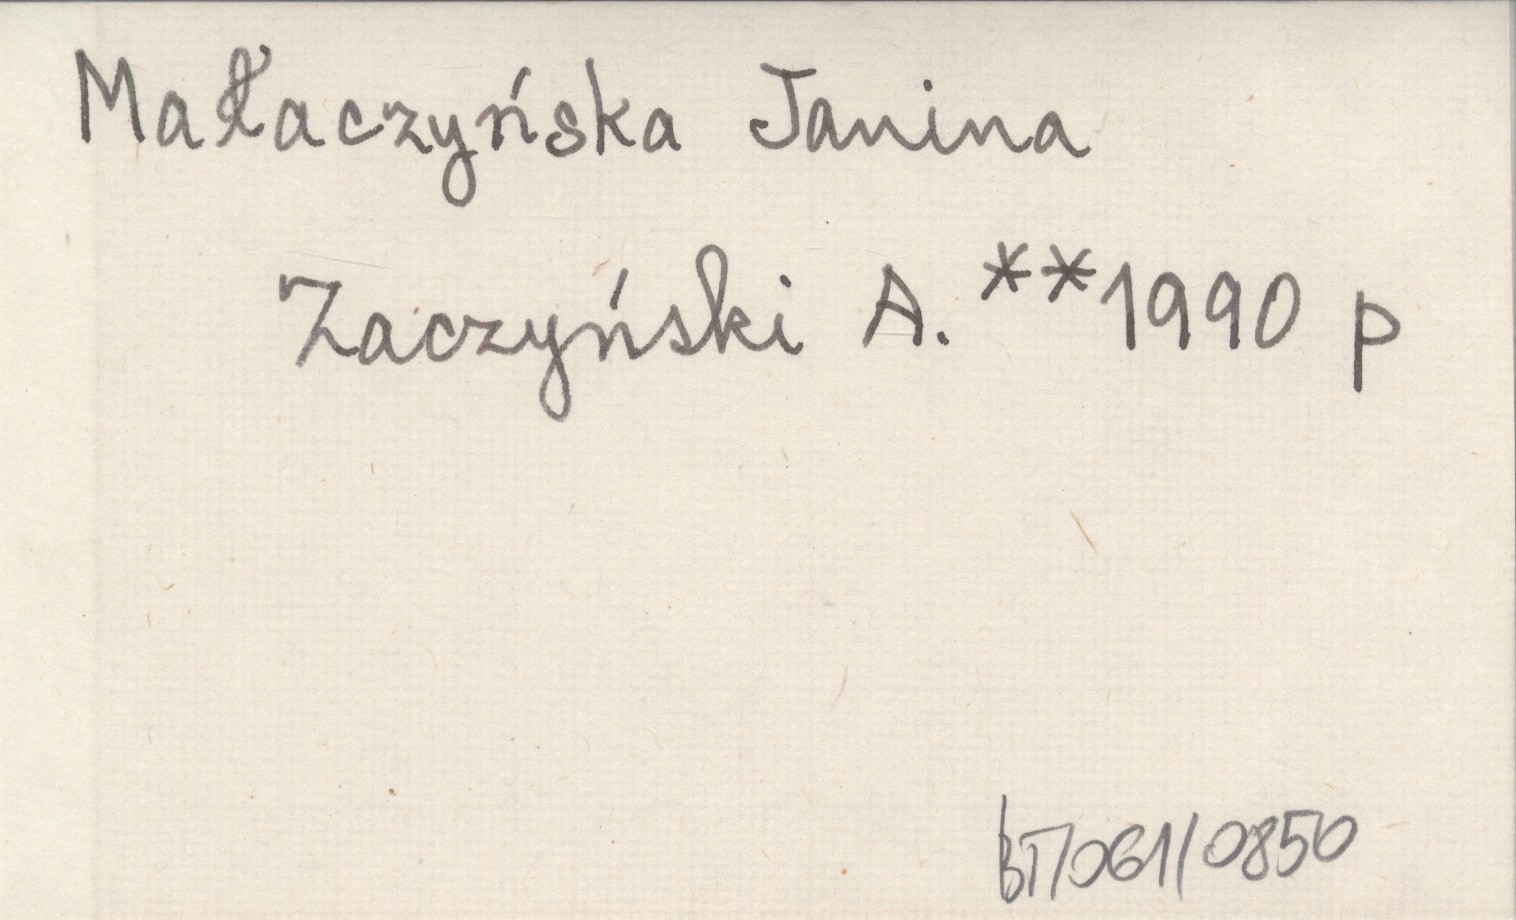 Małaczyńska Janina
Zaczyński A. **1990 p
BT/061/0850